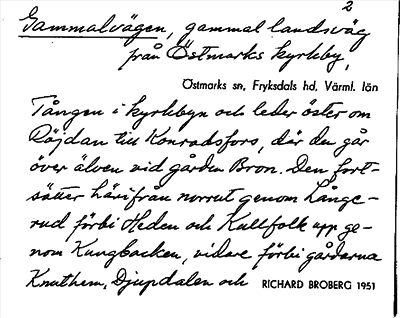 2
Gammalvägen, gammal landsväg
från Östmarks kyrkby,
Östmarks sn, Fryksdals hd, Värml. län
Tången i kyrkbyn och leder öster om
Röjdan till Konradsfors, där den går
över älven vid gården Bron. Den fort-
sätter härifrån norrut genom Långe-
rud förbi Heden och Kullfolk upp ge-
nom Kungbacken, vidare förbi gårdarna
Knuthem, Djupdalen och RICHARD BROBERG 1951